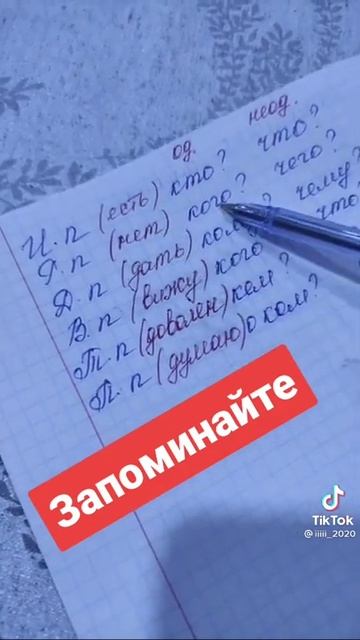 од. неод.
И. п (есть) кто? что?
Р. п (нет) кого? чего?
Д. п (дать) кому? чему?
В. п (вижу) кого что
Т. п (доволен) кем?
П. п (думаю) о ком?
Запоминайте
TikTok
@iiiii_2020